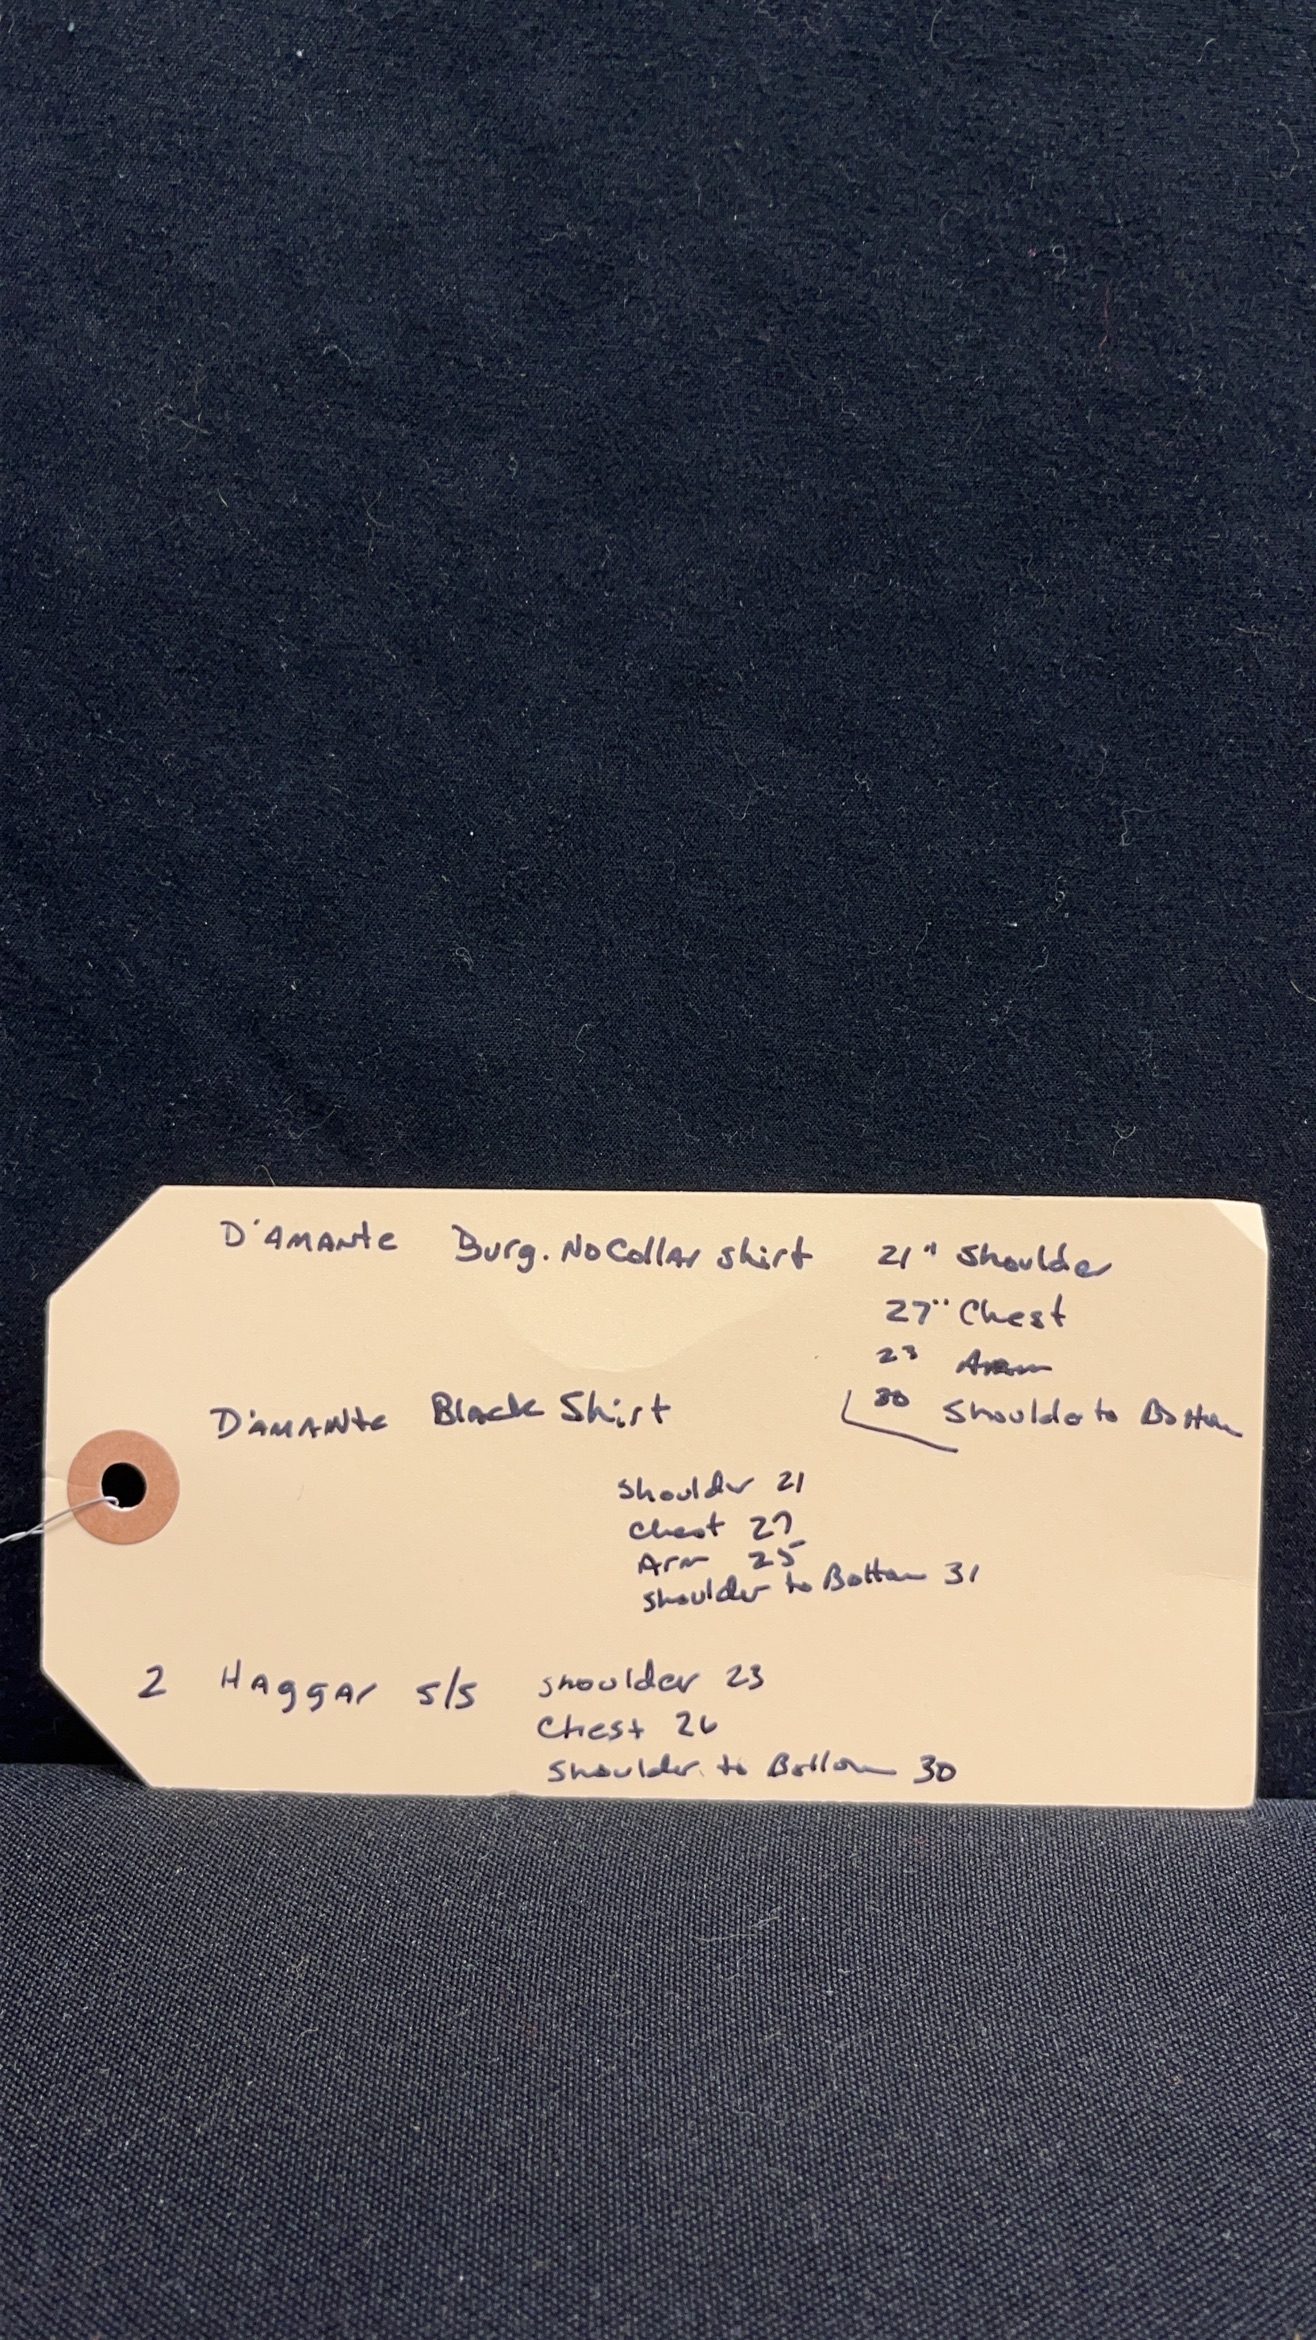 D'AMANte Burg. No Collar shirt 21" Shoulder
27" Chest
23 Arm
30 Shoulder to Bottom
D'AMANte Black Shirt
Shoulder 21
Chest 27
Arm 25
Shoulder to Bottom 31
2 HAggAr S/S Shoulder 23
Chest 26
Shoulder to Bottom 30